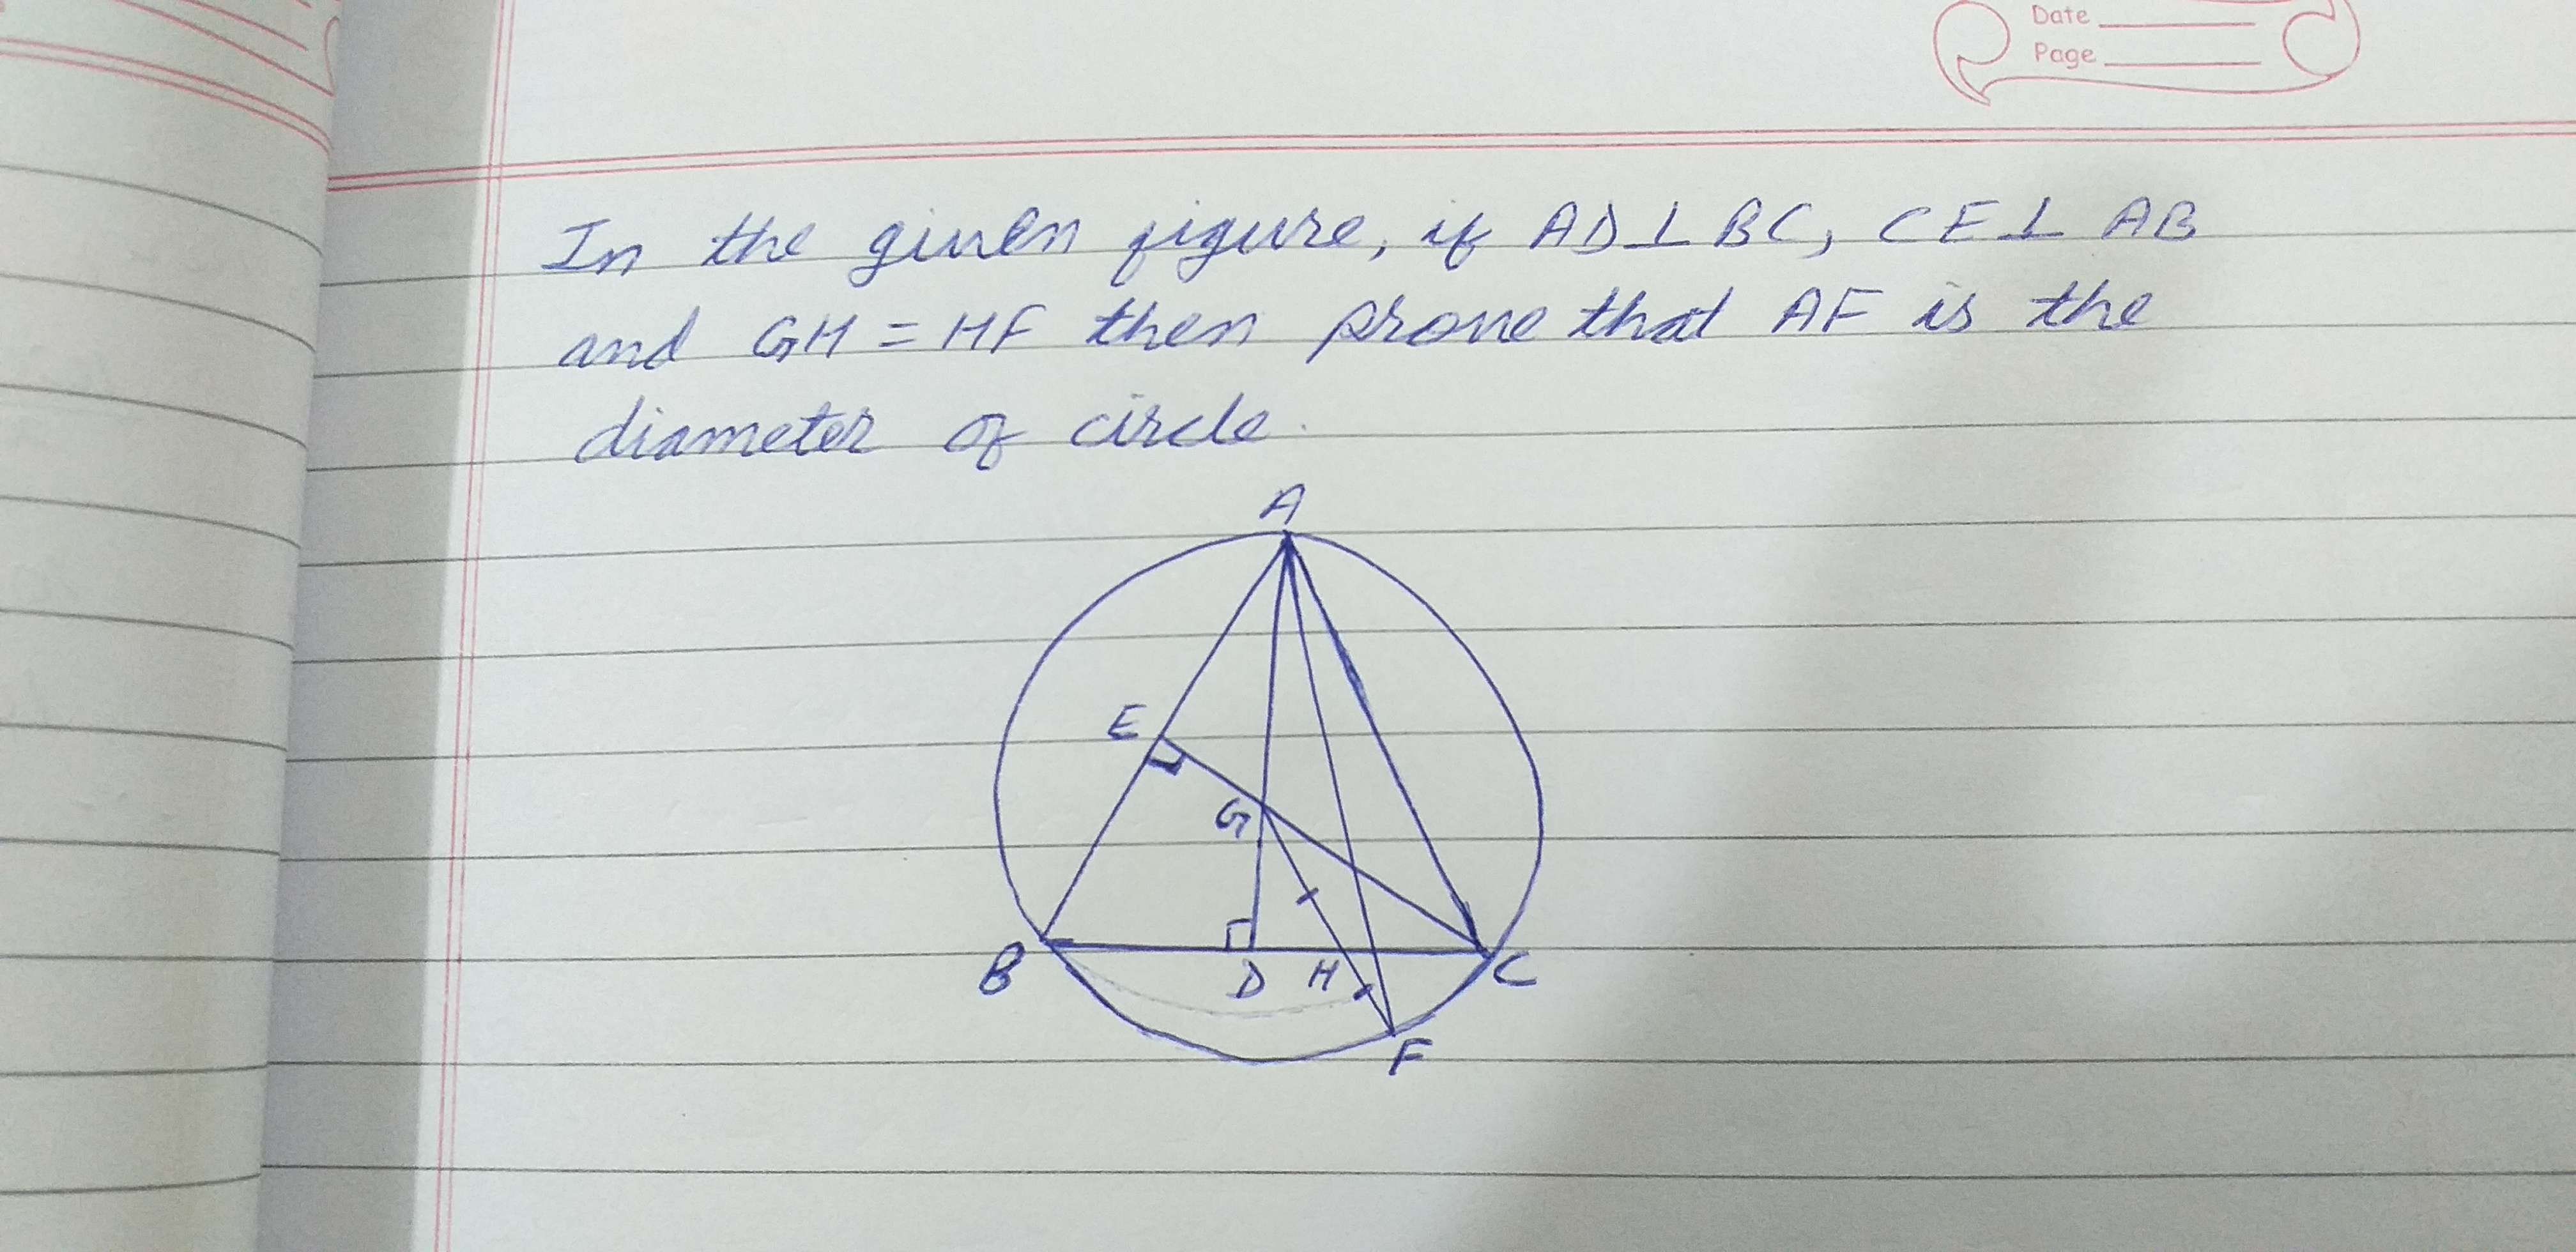 Date
Page
In the given figure, if AD⊥BC, CE⊥ AB
and GH = HF then prove that AF is the
diameter of circle.
A
E
G
B
D
H
C
F